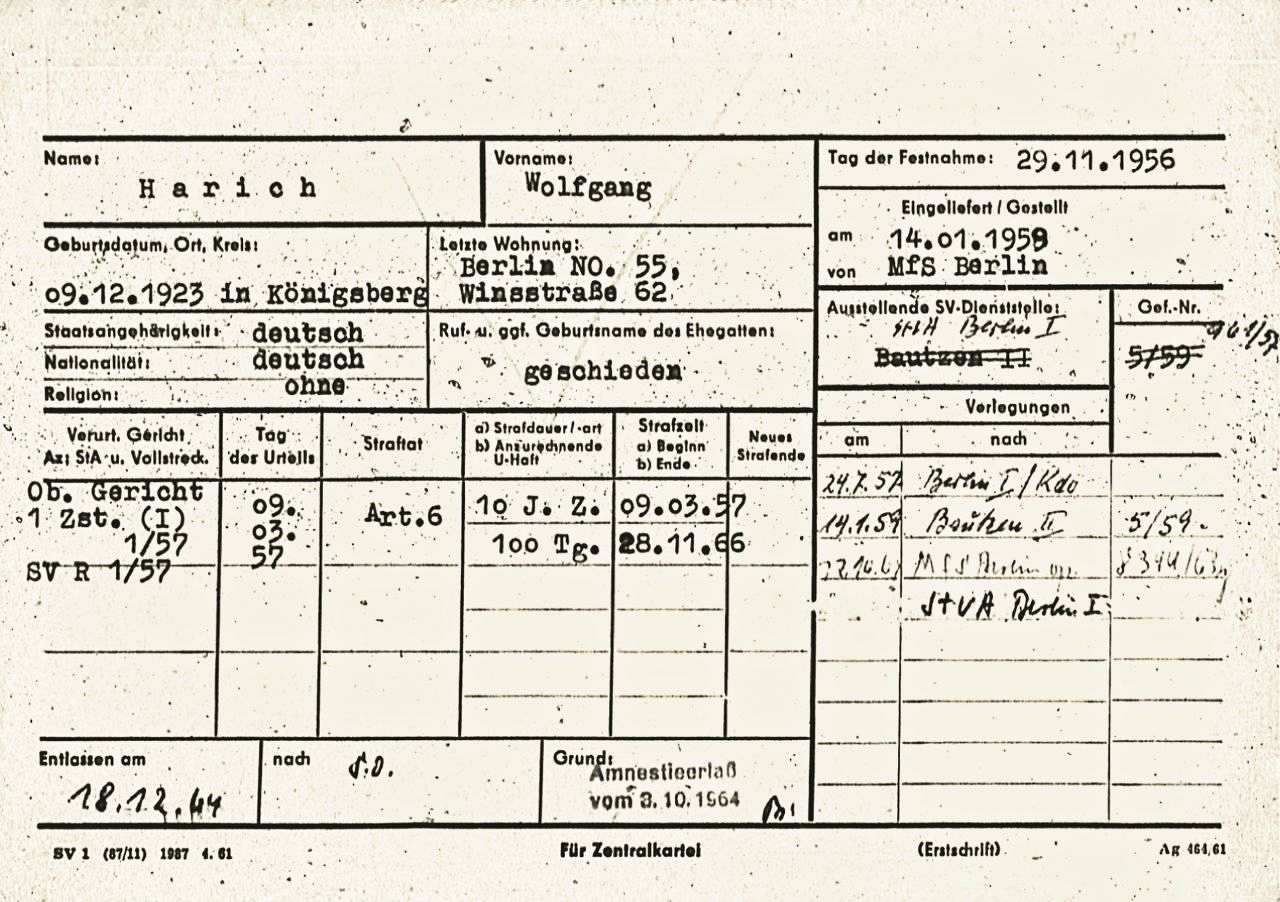 Name:
Harich
Vorname:
Wolfgang
Tag der Festnahme: 29.11.1956
Eingeliefert / Gestellt
am 14.01.1959
von MfS Berlin
Geburtsdatum, Ort, Kreis:
09.12.1923 in Königsberg
Letzte Wohnung:
Berlin NO. 55,
Winsstraße 62
Staatsangehörigkeit: deutsch
Nationalität: deutsch
Religion: ohne
Ruf- u. ggf. Geburtsname des Ehegatten:
geschieden
Ausstellende SV-Dienststelle:
Berlin I
Bautzen II
Gef.-Nr.
5/59
Verlegungen
am
nach
24.7.57 Berlin I / Kdo
14.1.59 Bautzen II 5/59.
StVA Berlin I
Verurt. Gericht
Az: StA u. Vollstreck.
Tag
des Urteils
Straftat
a) Strafdauer/-art
b) Anzurechnende
U-Haft
Strafzeit
a) Beginn
b) Ende
Neues
Strafende
Ob. Gericht
1 Zst. (I)
1/57
SV R 1/57
09.
03.
57
Art.6
10 J. Z.
100 Tg.
09.03.57
28.11.66
Entlassen am
18.12.64
nach
Grund:
Amnestieerlaß
vom 3.10.1964
SV 1 (87/11) 1987 4. 61
Für Zentralkartei
(Erstschrift)
Ag 464/61